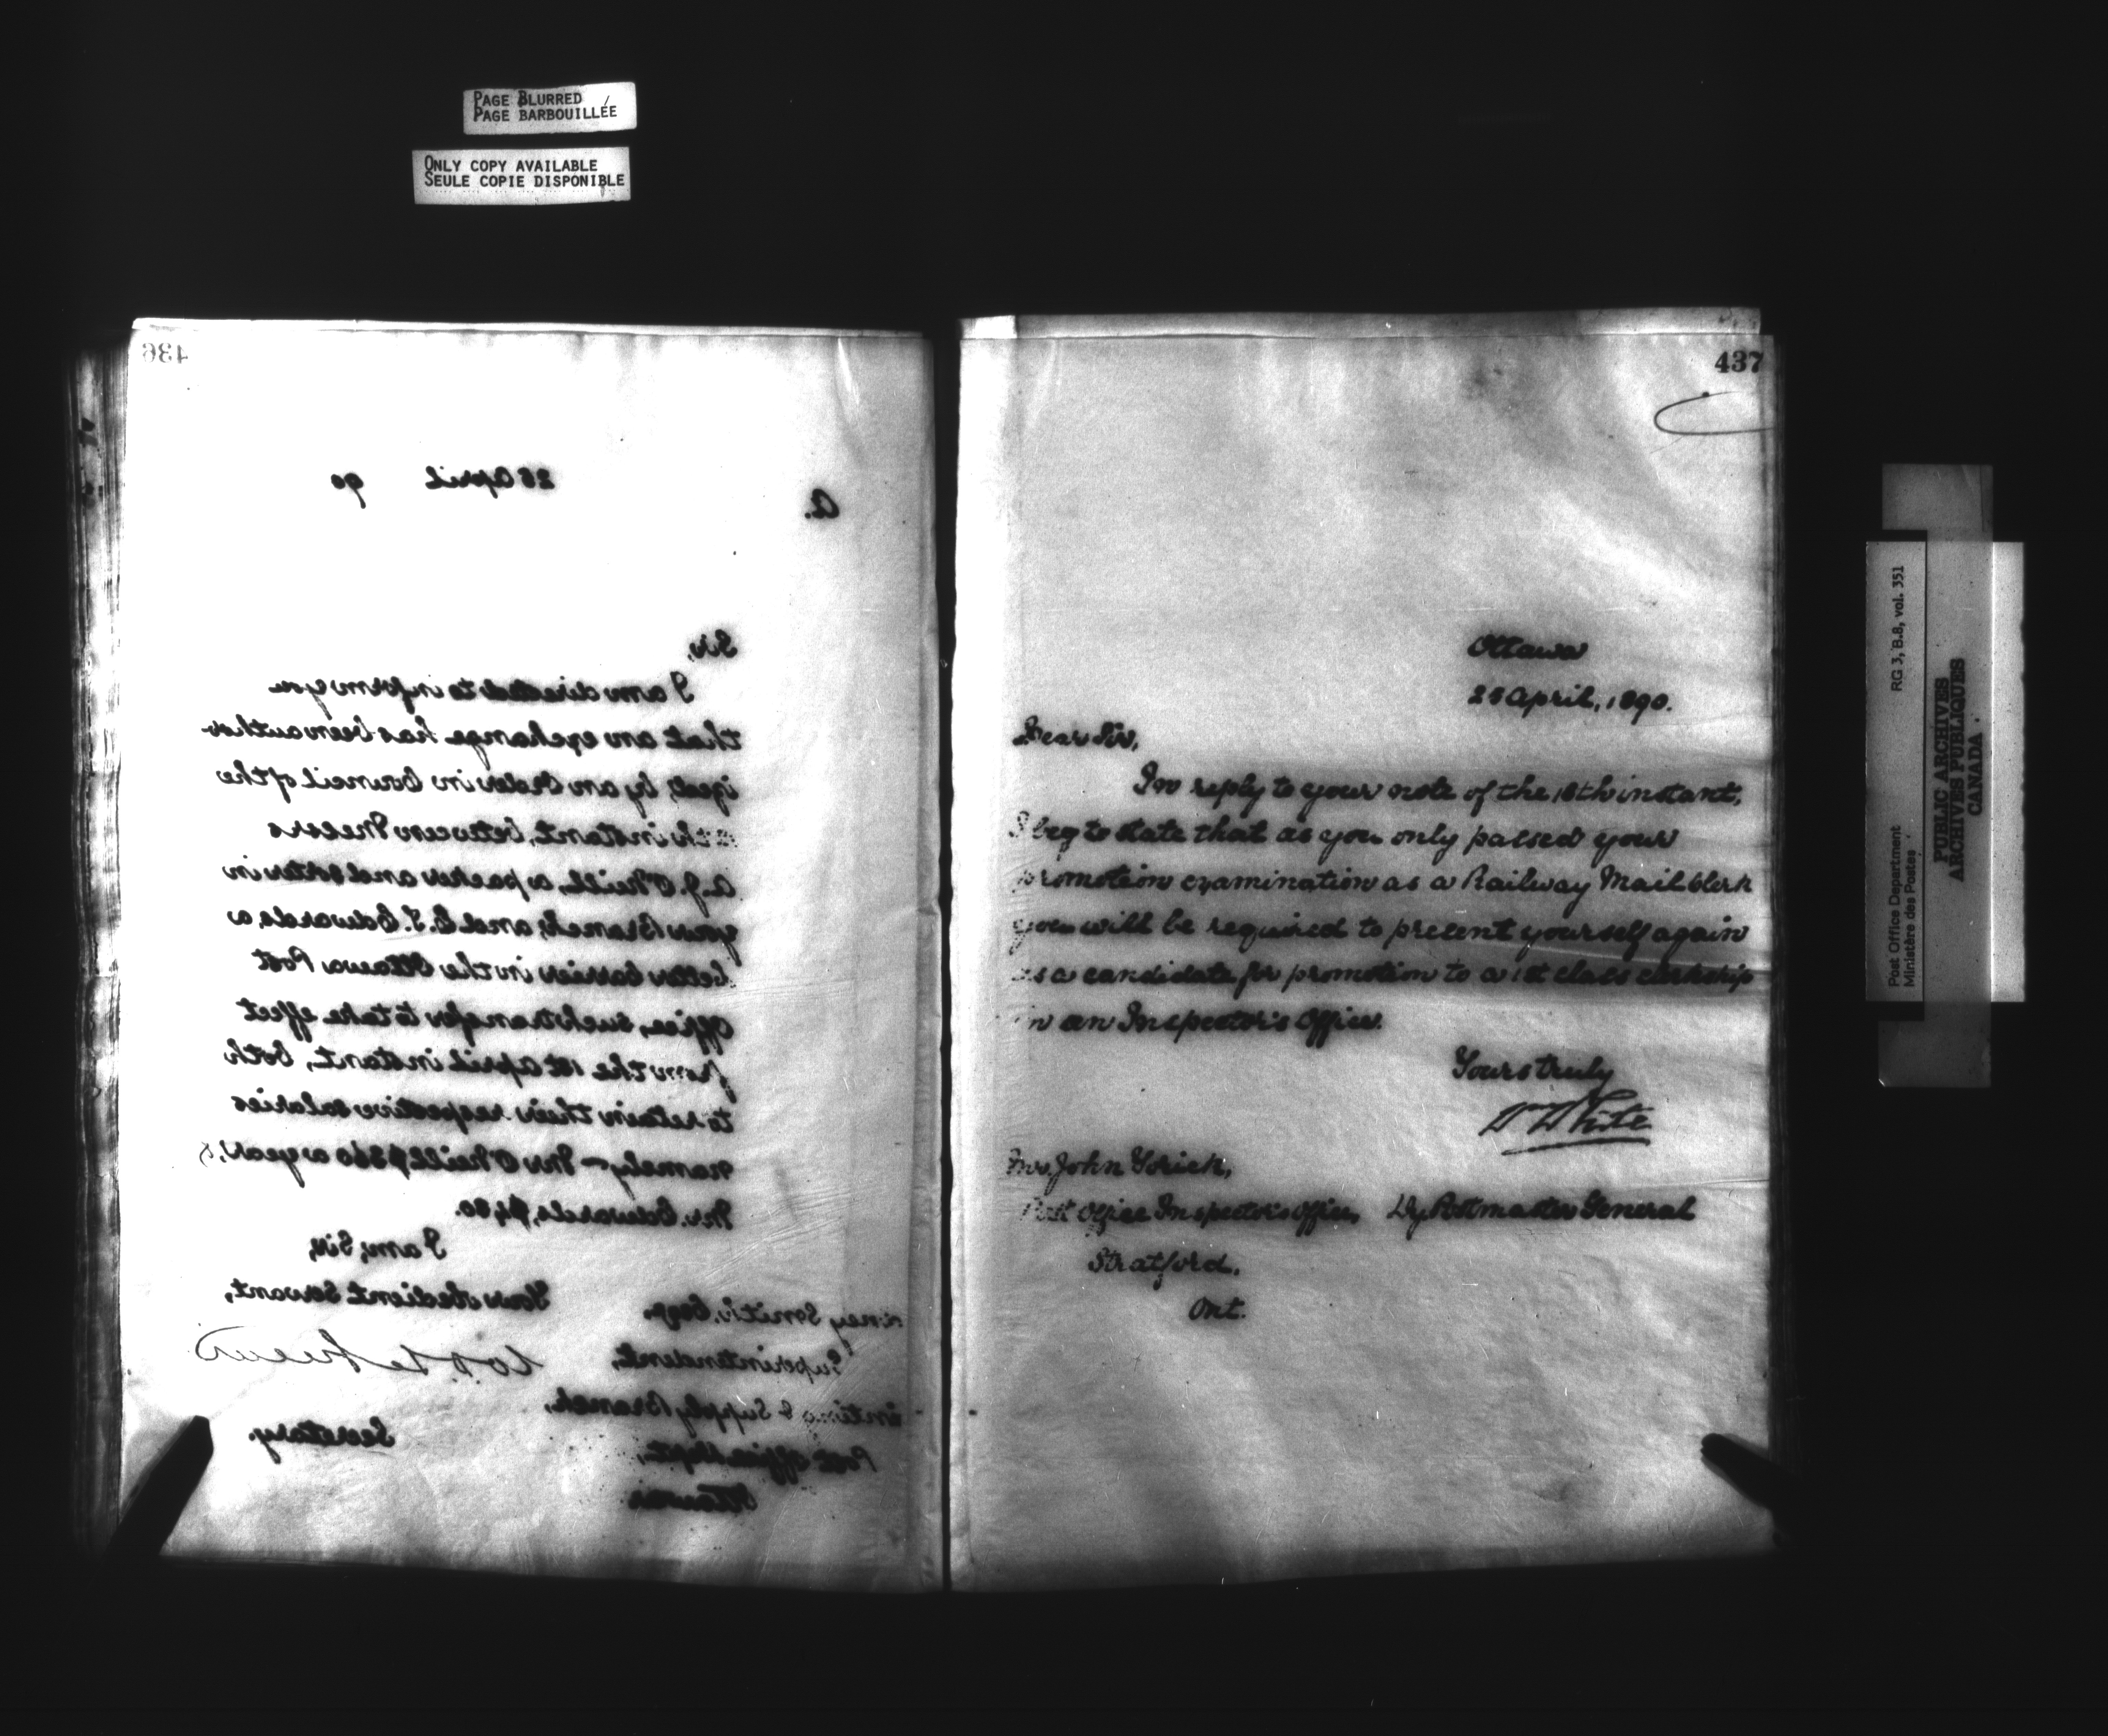 PAGE BLURRED
PAGE BARBOUILLÉE
ONLY COPY AVAILABLE
SEULE COPIE DISPONIBLE
436
25 April 90
A.
Sir,
I am directed to inform you
that an exchange has been author
ized, by an Order in Council of the
instant, between Messrs
A.J. O'Neill, a packer and sorter in
your Branch, and C. S. Edwards, a
letter carrier in the Ottawa Post
Office, such transfer to take effect
from the 1st April instant, both
to retain their respective salaries
namely - Mr O'Neill $360 a year, &
Mr. Edwards, $480.
I am, Sir,
Your obedient Servant,
Secretary.
Smith, Esqr.
Superintendent,
& Supply Branch,
Post Office Dept.
Ottawa
437
Ottawa
25 April, 1890.
Dear Sir,
In reply to your note of the 18th instant,
I beg to state that as you only passed your
promotion examination as a Railway Mail Clerk
you will be required to present yourself again
as a candidate for promotion to a 1st class clerkship
in an Inspector's Office.
Yours truly
W White
Dy Postmaster General
Mr. John Yorick,
Post Office Inspector's Office,
Stratford.
Ont.
Post Office Department RG 3, B.8, vol. 351
Ministère des Postes
PUBLIC ARCHIVES
ARCHIVES PUBLIQUES
CANADA